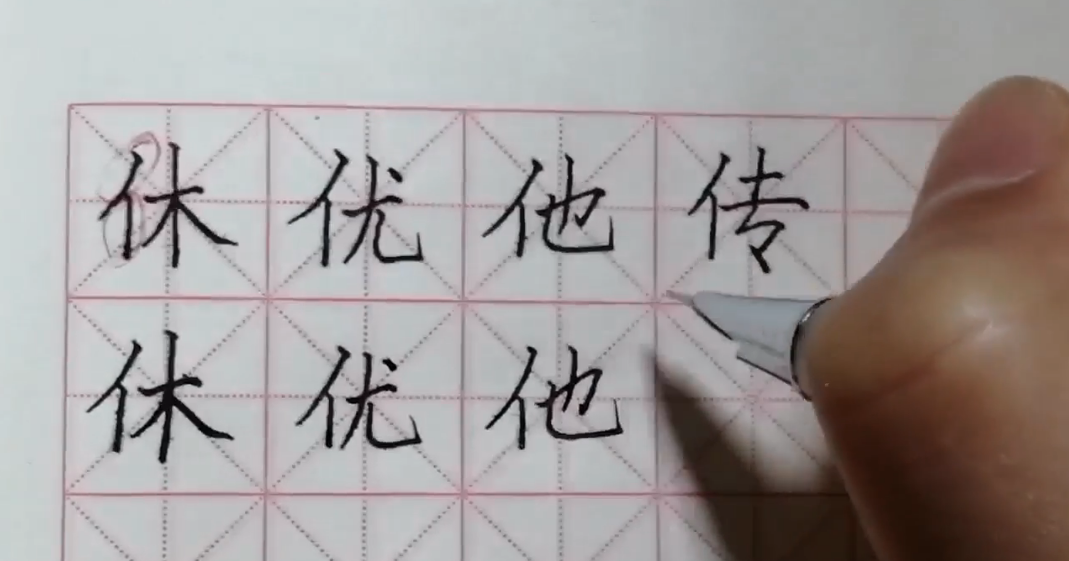 休优他传
休优他